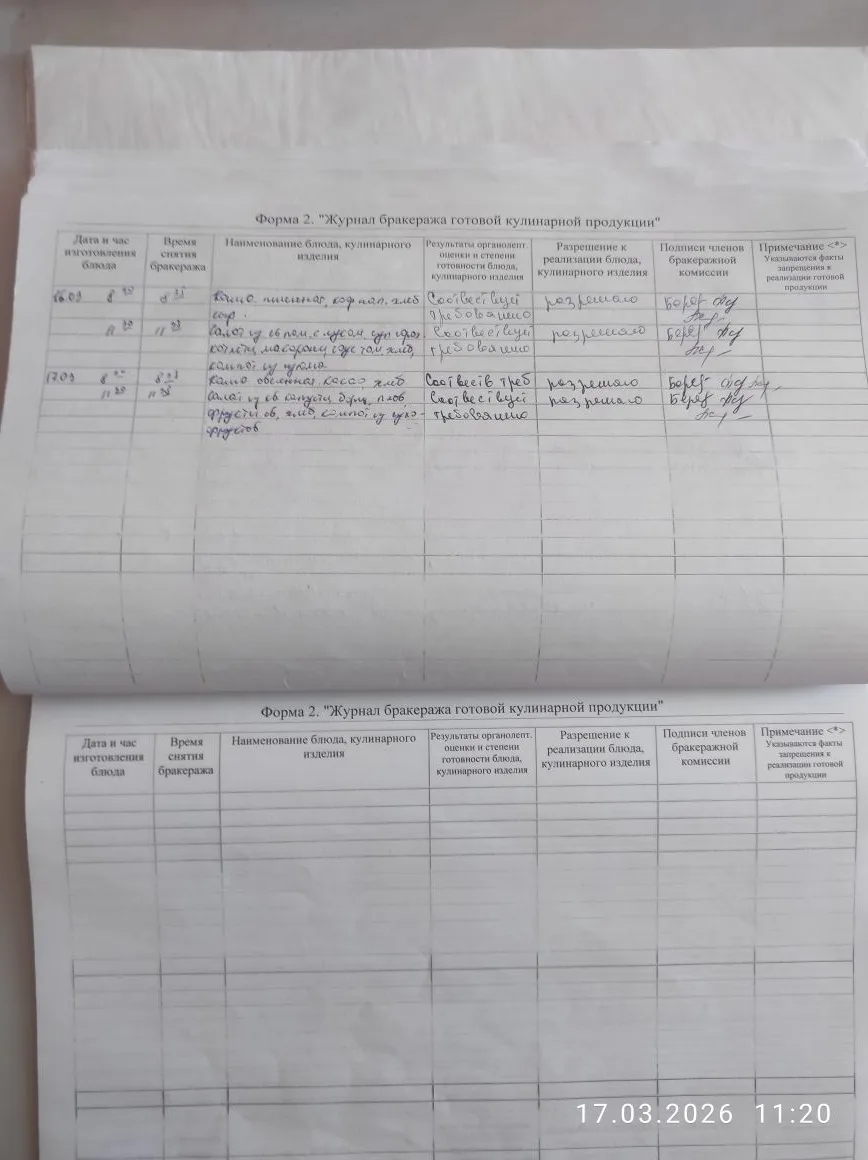 Форма 2. "Журнал бракеража готовой кулинарной продукции"
Дата и час изготовления блюда
Время снятия бракеража
Наименование блюда, кулинарного изделия
Результаты органолепт. оценки и степени готовности блюда, кулинарного изделия
Разрешение к реализации блюда, кулинарного изделия
Подписи членов бракеражной комиссии
Примечание <*> Указываются факты запрещения к реализации готовой продукции
16.09 8 8 каша пшенная, хлеб Соотвествует розрешаю Берег
сыр. требовяниво
11 11 салат из св пом. с луком, суп Соотвествует розрешаю Берег
котлеты, макароны хлеб, требовяниво
компот из изюма
17.09 8 8 каша овсянная, какао, хлеб Соотвеств треб розрешаю Берег
11 11 салат из св капусты борщ, плов, Соотвествует розрешаю Берег
фрукты св, хлеб, компот из сухо- требовяниво
фруктов
Форма 2. "Журнал бракеража готовой кулинарной продукции"
Дата и час изготовления блюда
Время снятия бракеража
Наименование блюда, кулинарного изделия
Результаты органолепт. оценки и степени готовности блюда, кулинарного изделия
Разрешение к реализации блюда, кулинарного изделия
Подписи членов бракеражной комиссии
Примечание <*> Указываются факты запрещения к реализации готовой продукции
17.03.2026 11:20